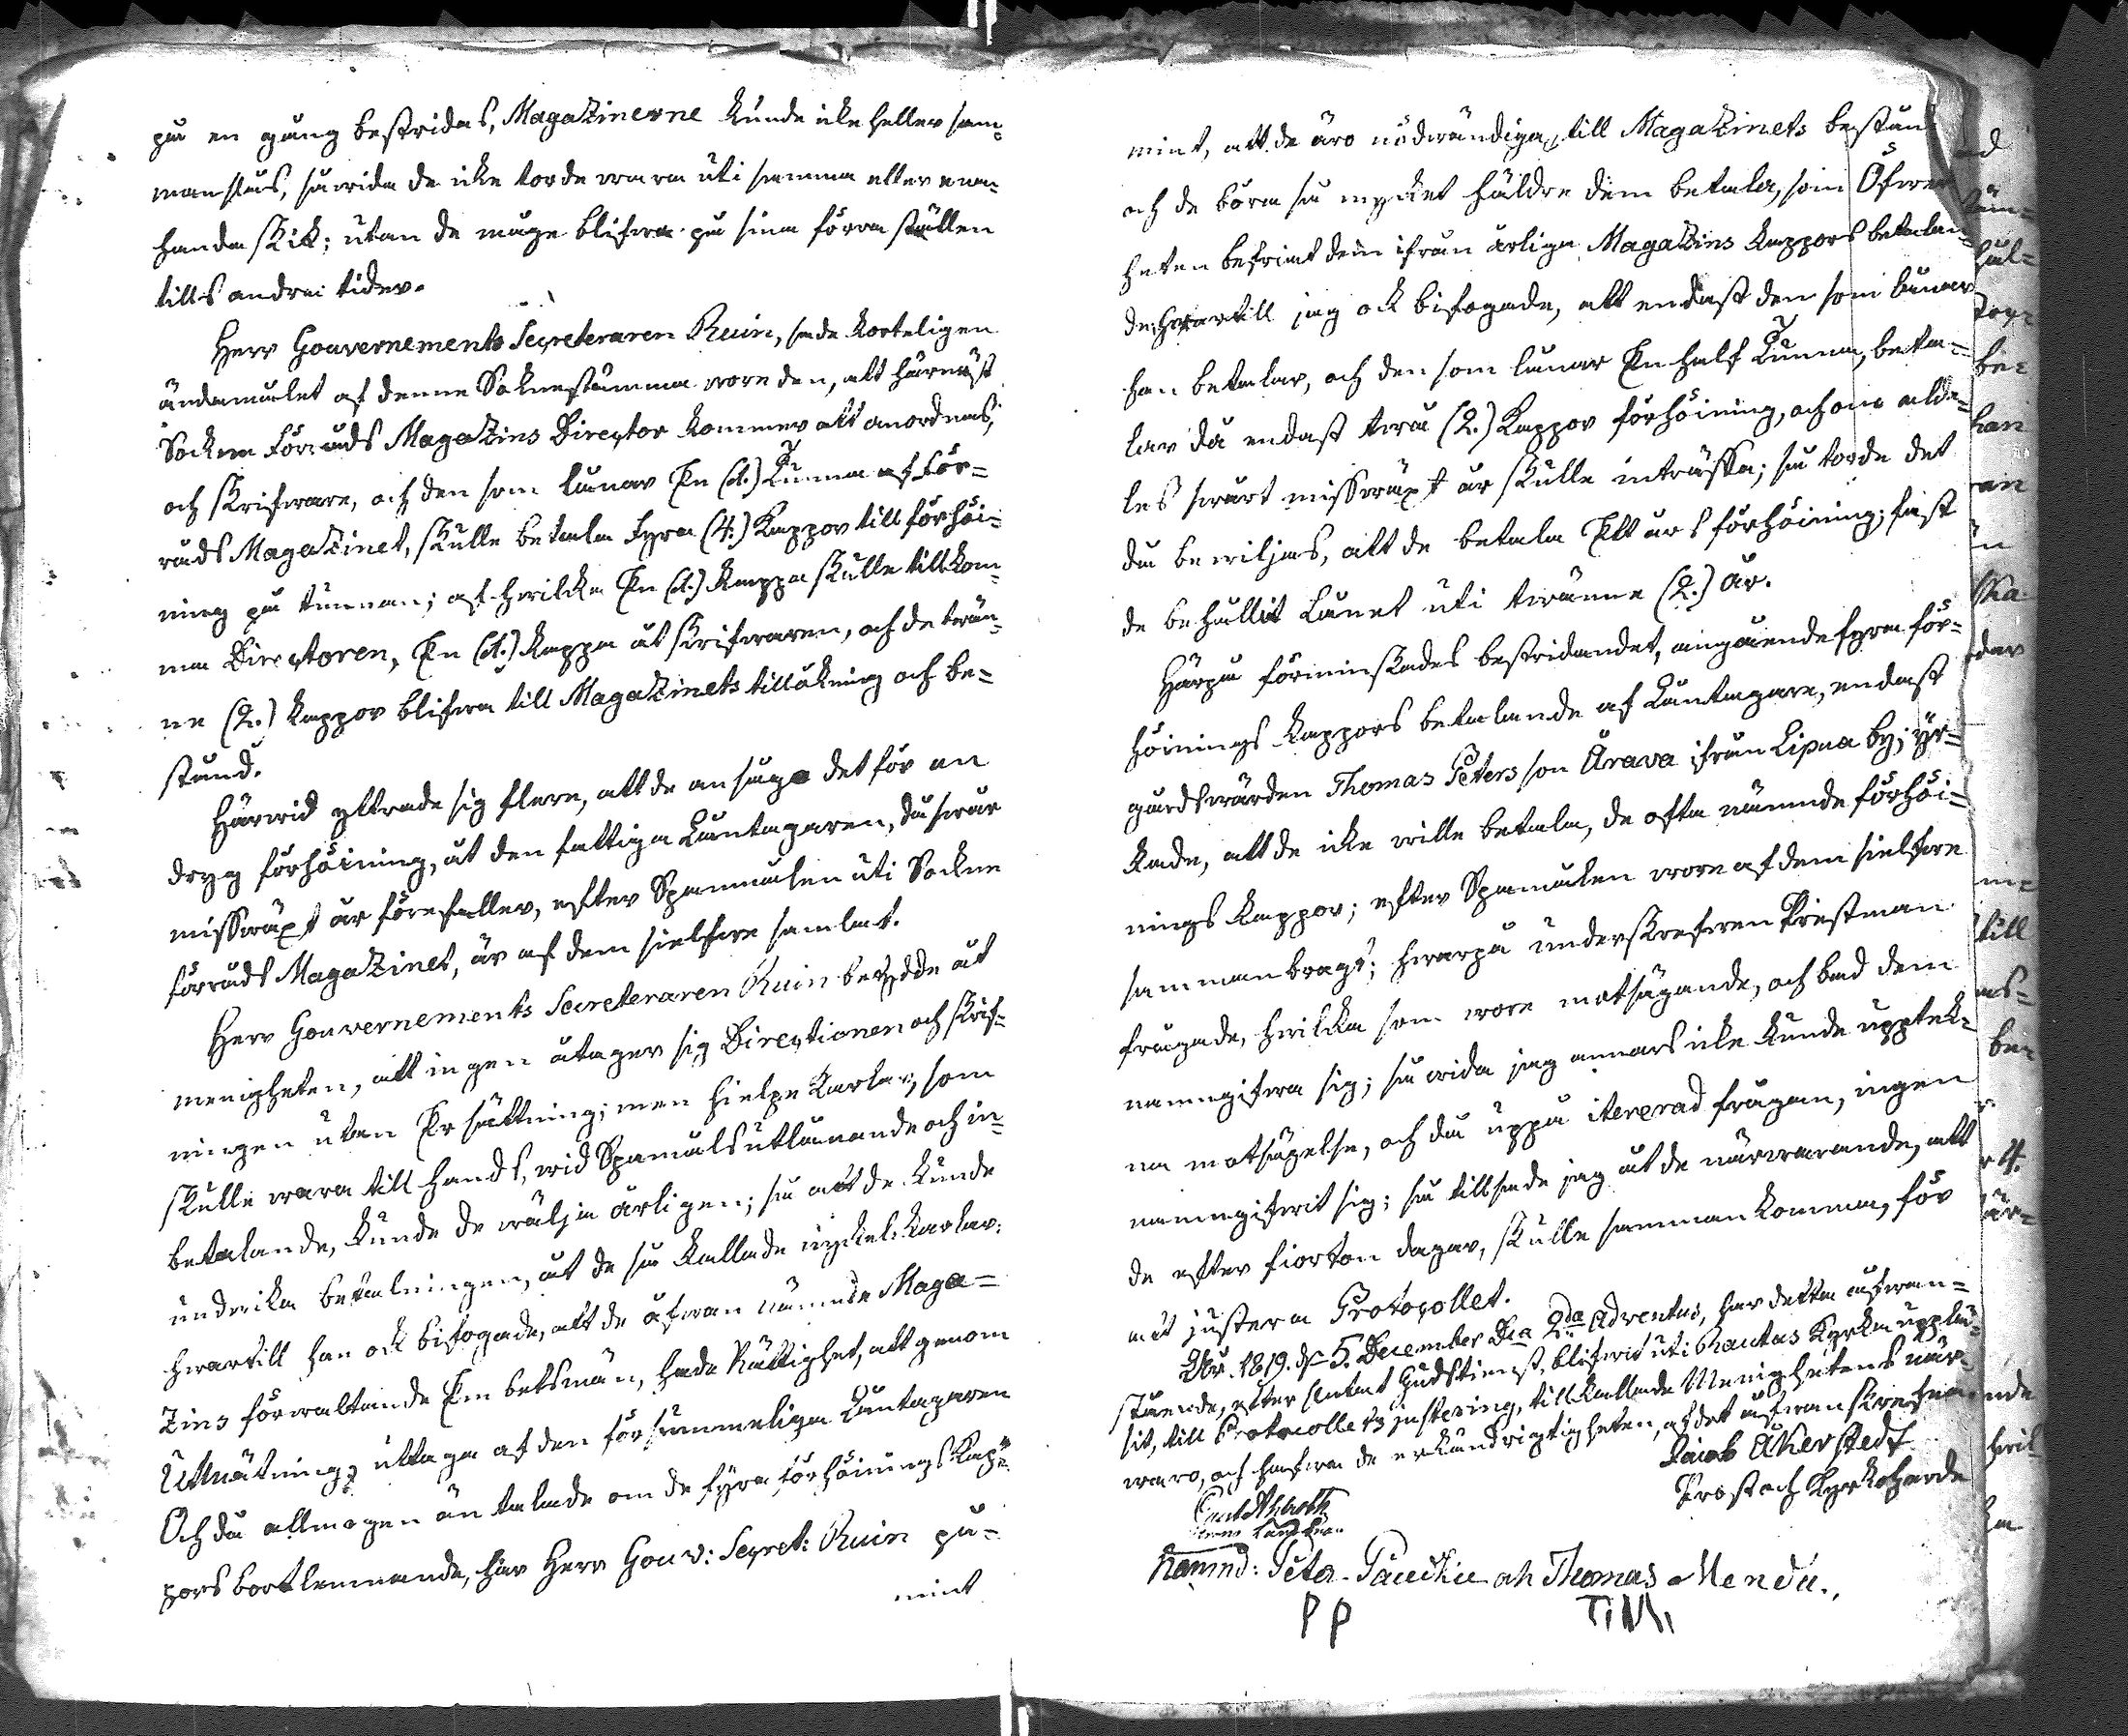 på en gång bestridas, Magazinerne kunde icke heller sam=
manslås, så wida de icke torde wara uti samma eller ena=
handa skik; utan de måge blifwa på sina förra ställen
tills andra tider.
Herr Gouvernements Secreteraren Ruin, sade korteligen
ändamålet af denne Soknestämma wore den, att härnäst
Sockne Förråds Magazins Director kommer att anordnas,
och skrifware, och den som lånar En (1.) Tunna af För=
råds Magazinet, skulle betala Fyra (4.) Kappor till förhöi=
ning på tunnan; af hwilka En (1.) kappa skulle tillkom=
ma Directoren, En (1.) kappa åt skrifwaren, och de twän=
ne (2.) kappor blifwa till Magazinets tillökning och be=
stånd.
Härwid yttrade sig flere, att de ansåge det för en
dryg förhöining, åt den fattiga Låntagaren, då swår
misswäxt år förefaller, efter Spannmålen uti Sockne
förråds Magazinet, är af dem sielfwe samlat.
Herr Gouvernements Secreteraren Ruin betydde åt
menigheten, att ingen åtager sig Directionen och skrif=
ningen utan Ersättning; men hielpe Karlar, som
skulle wara till hands, wid Spanmåls utlånande och in=
betalande, kunde de wälja årligen; så att de kunde
undwika betalningen, åt de så kallade nyckel-karlar:
hwartill han ock bifogade, att de ofwan nämnde Maga=
zins förwaltande Embetsmän, hade Rättighet, att genom
Utmätning, uttaga af den försummeliga Låntagaren
Och då allmogen än talade om de fyra förhöinings Kap=
pors bortlemnande, har Herr Gouv: Secret: Ruin på=
mint
mint, att de äro nödwändiga, till Magazinets bestån
och de böra så mycket häldre dem betala, som Öfwer
heten befriat dem ifrån årliga Magazins kappors betalan=
de; hwartill jag ock bifogade, att endast den som lånar
han betalar, och den som lånar En half Tunna, beta=
lar då endast twå (2.) Kappor förhöining, och om alde=
les swårt misswäxt år skulle inträffa; så torde det
då bewiljas, att de betala Ett års förhöining; fast
de behållit Lånet uti twänne (2.) år.
Härpå förminskades bestridandet, angående fyra för=
höinings kappors betalande af Låntagare, endast
gårdswärden Thomas Peters son Ärava ifrån Lipua by; yr=
kade, att de icke wille betala, de ofta nämnde förhöi=
nings kappor; efter Spanmålen wore af dem sielfwe
sammanbragt; hwarpå underskrefwen Prestman
frågade, hwilka som wore motsägande, och bad dem
namngifwa sig; så wida jag annars icke kunde upptek=
na motsägelse, och då uppå itererad frågan, ingen
namngifwit sig; så tillsade jag åt de närwarande, att
de efter fiorton dagar, skulle samman komma, för
att justera Protocollet.
År 1819. d. 5. December Dca 2da Adventus, har detta ofwan=
stående, efter slutat Gudstienst, blifwit uti Rautus Kyrka upplä=
sit, till Protocollets justering, tillkallade Menighetens när=
waro, och hafwa de erkänd rigtigheten, af det ofwan skrefne
Jacob Åkerstedt
Prost och Kyrkoherde
Nämnd: Peter Päiwikie och Thomas Mendu.,
P P TiM